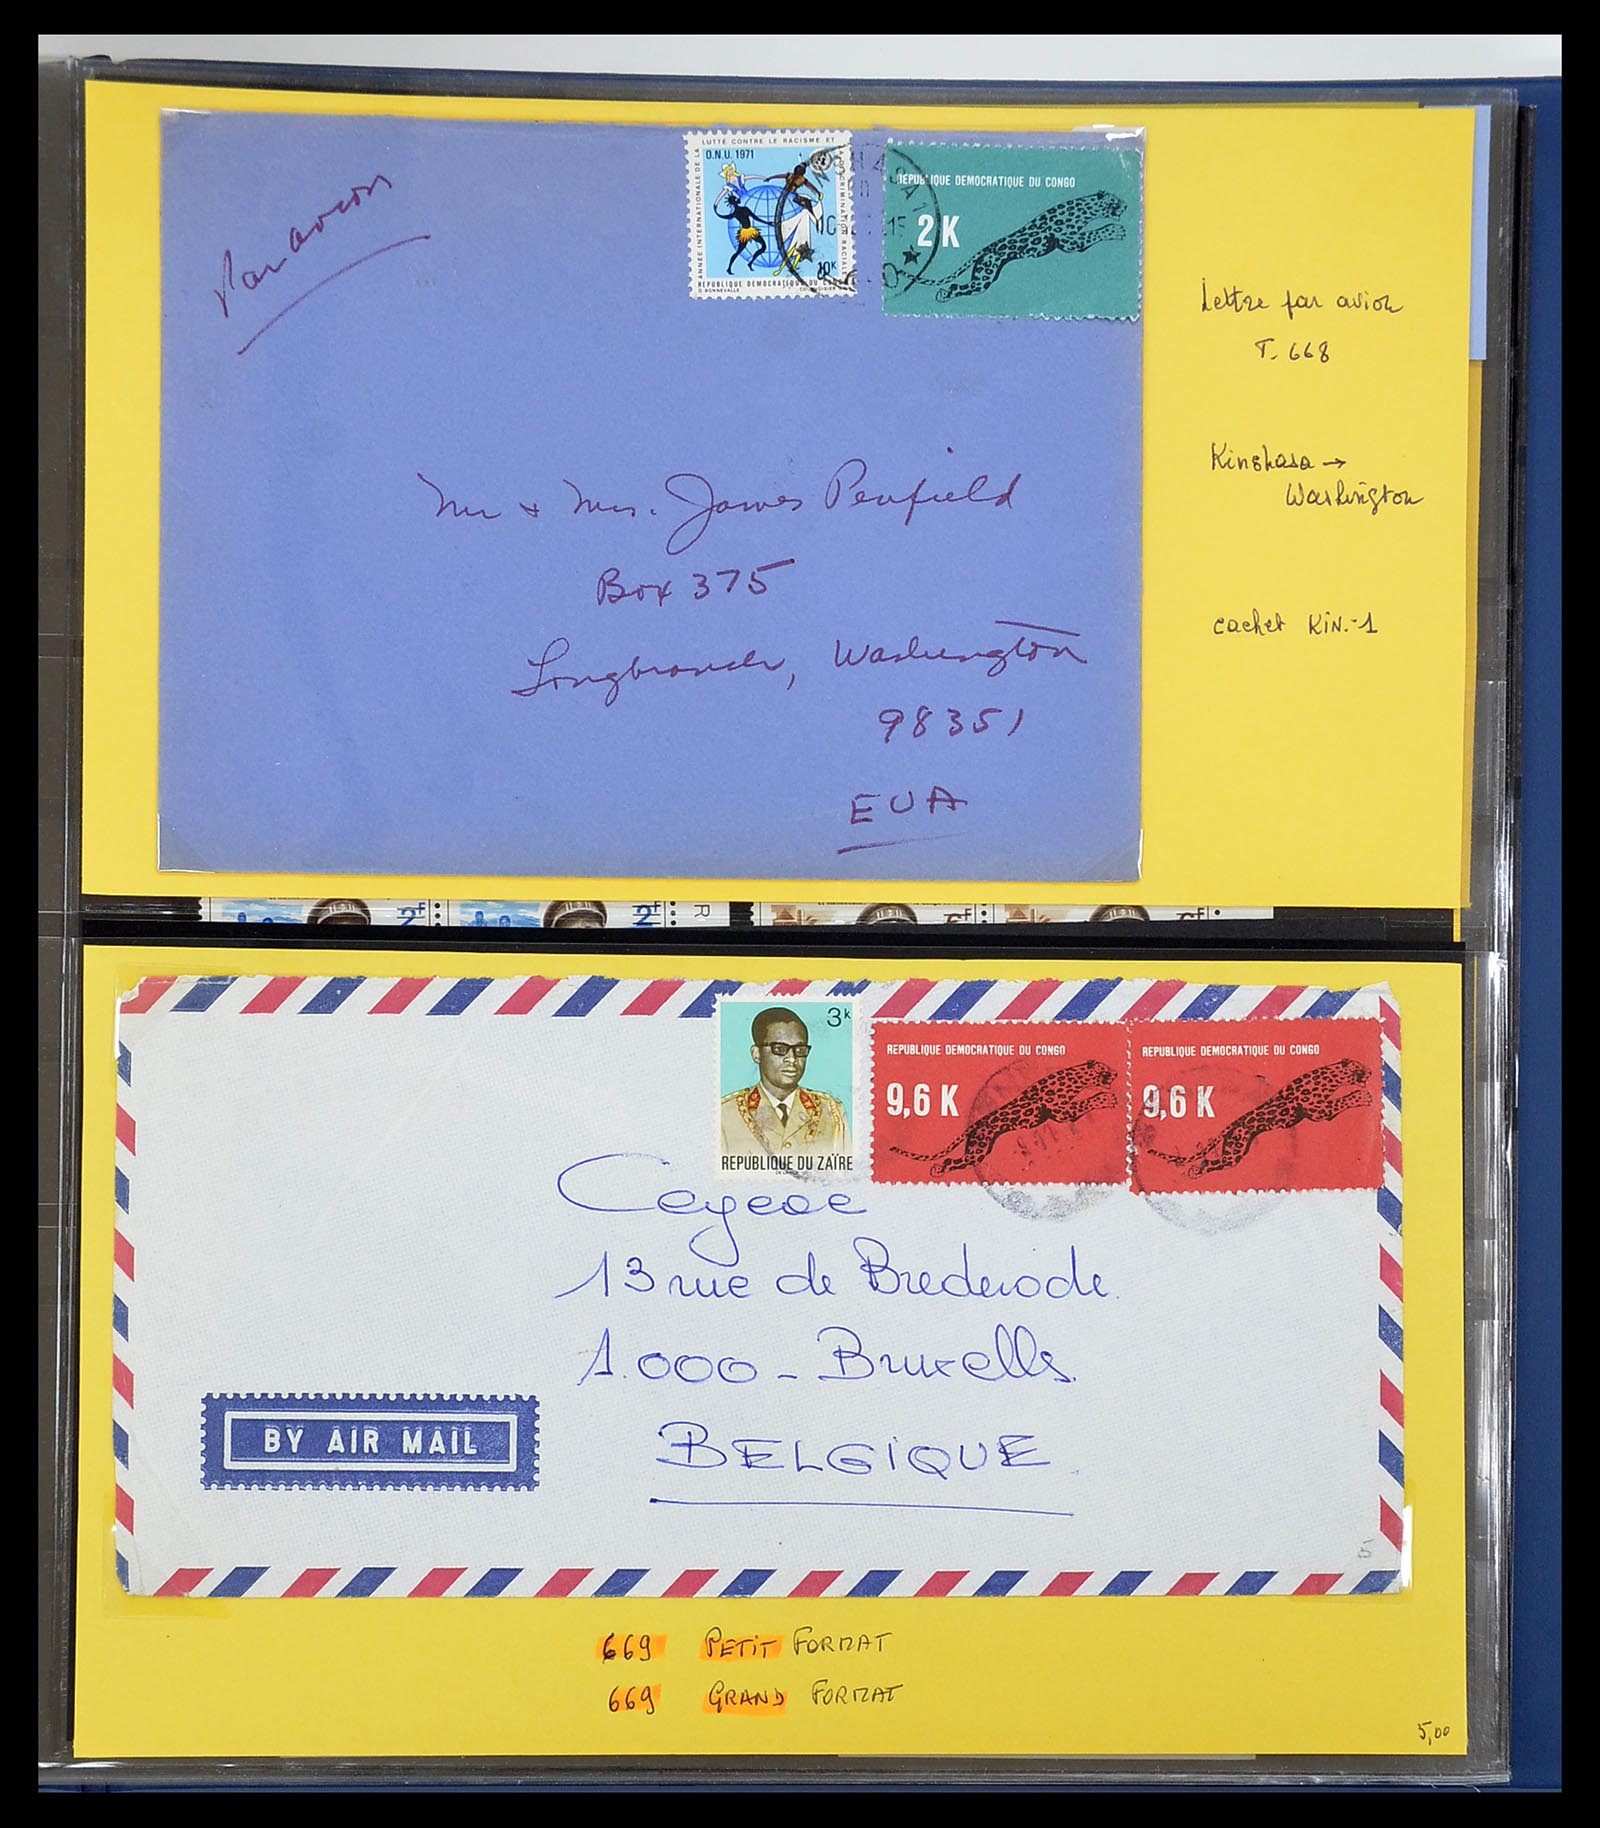 Par avion
LUTTE CONTRE LE RACISME ET
LA DISCRIMINATION RACIALE
ANNÉE INTERNATIONALE DE LA
O.N.U. 1971
10K
REPUBLIQUE DEMOCRATIQUE DU CONGO
O BONNEVALLE COURVOISIER
KINSHASA 1
REPUBLIQUE DEMOCRATIQUE DU CONGO
2 K
Mr + Mrs. James Penfield
Box 375
Longbranch, Washington
98351
EUA
Lettre par avion
T. 668
Kinshasa →
Washington
cachet KIN.-1
2F
2F
R
3K
REPUBLIQUE DU ZAÏRE
REPUBLIQUE DEMOCRATIQUE DU CONGO
9,6 K
REPUBLIQUE DEMOCRATIQUE DU CONGO
9,6 K
13 rue de Brederode.
1.000 - Bruxelles.
BELGIQUE.
BY AIR MAIL
669 PETIT FORMAT
669 GRAND FORMAT
5,00